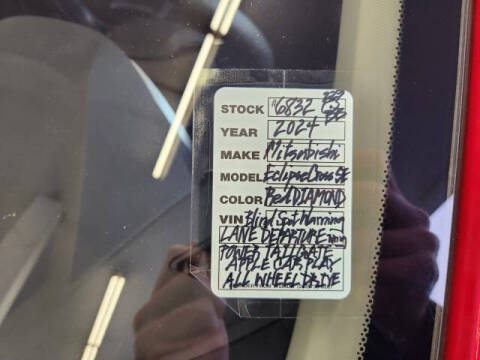 STOCK #6832
YEAR 2024
MAKE Mitsubishi
MODEL Eclipse Cross SE
COLOR Red DIAMOND
VIN Blind Spot Warning
LANE DEPARTURE
POWER TAILGATE
APPLE CAR PLAY
ALL WHEEL DRIVE